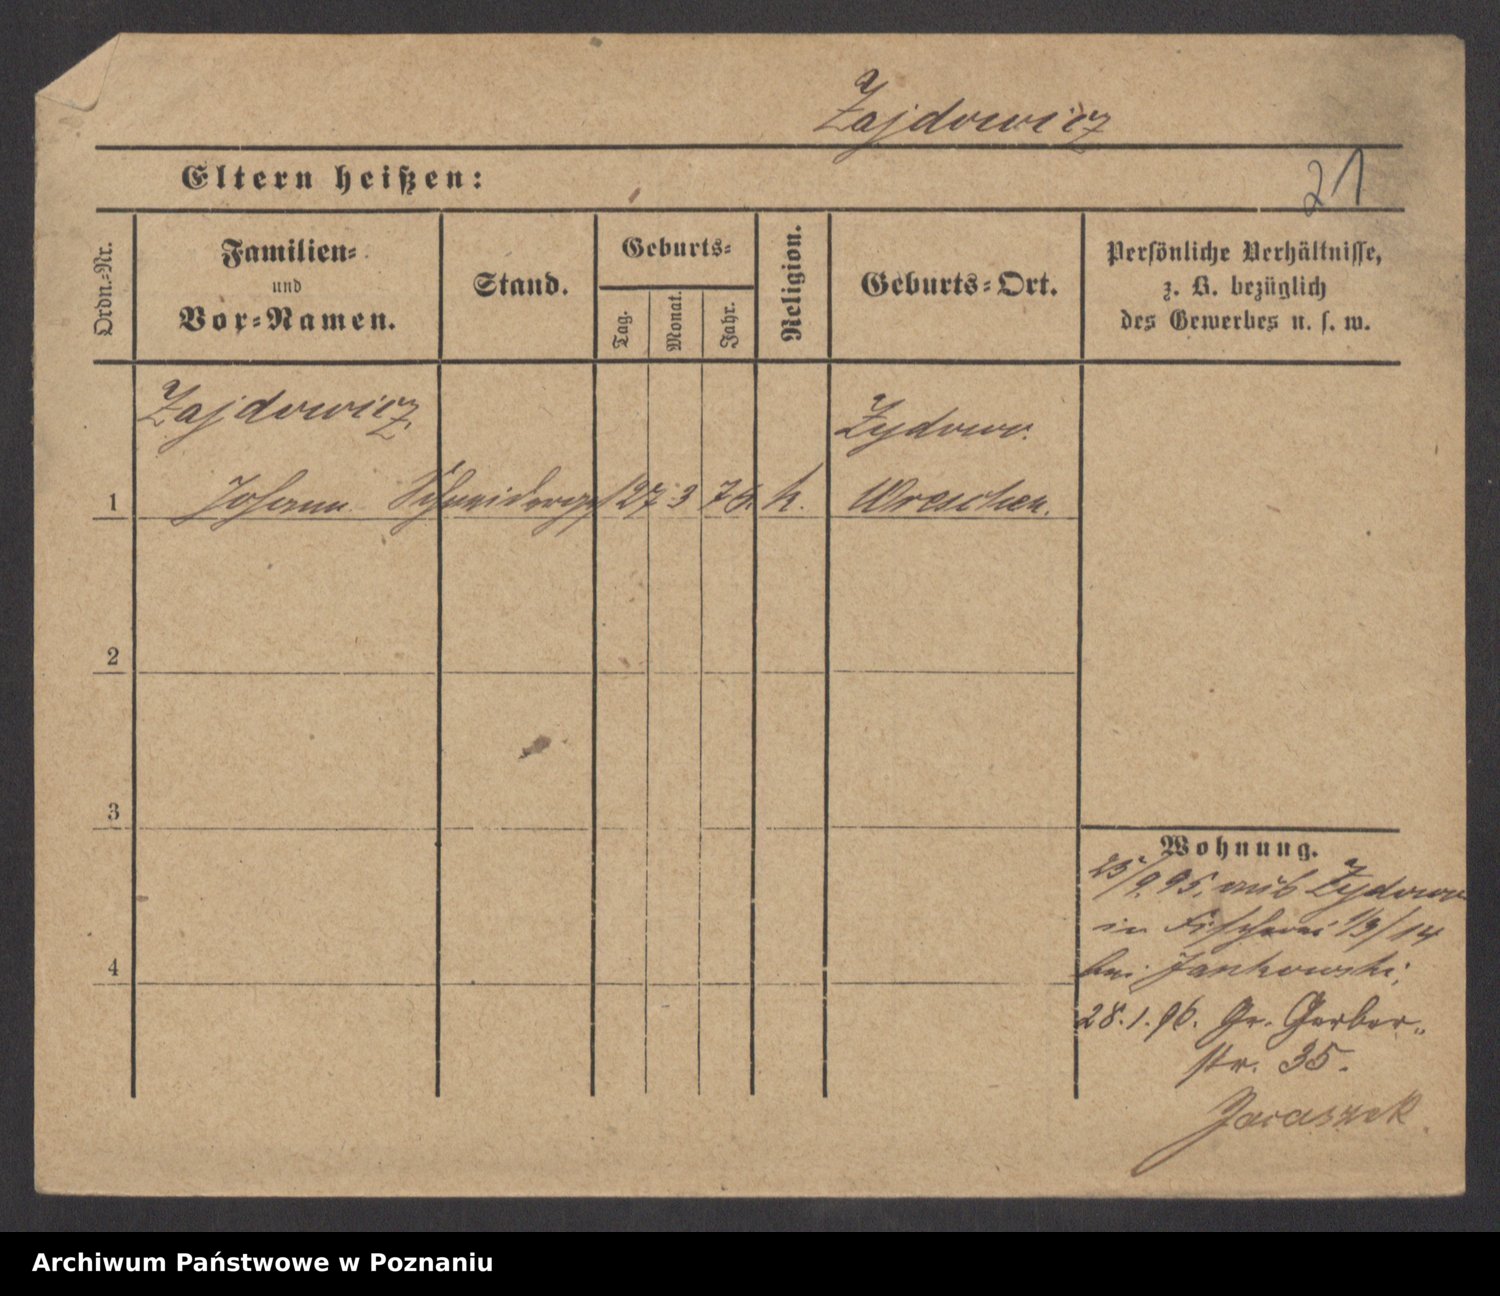 Zajdowicz
21
Eltern heißen:
Ordn.-Nr.
Familien-
und
Vor-Namen.
Stand.
Geburts-
Tag.
Monat.
Jahr.
Religion.
Geburts-Ort.
Persönliche Verhältnisse,
z. B. bezüglich
des Gewerbes u. s. w.
Zajdowicz
Zydowo.
1 Johann Schneiderges 27 3 76. k. Wreschen.
2
3
4
Wohnung.
25/9.95. aus Zydowo
in Fischerei 13/14
bei Jankowski;
28.1.96. Gr. Gerber-
str. 35.
Archiwum Państwowe w Poznaniu